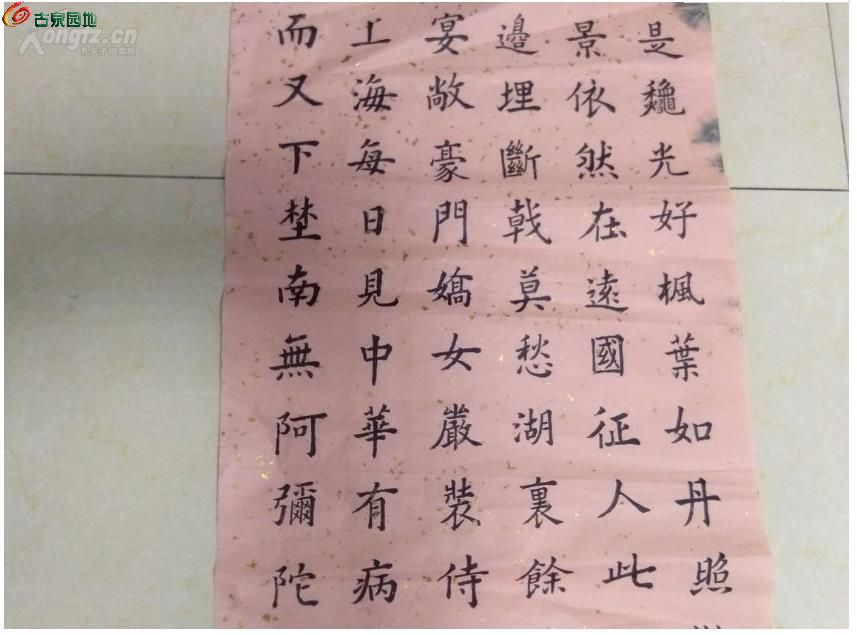 古泉园地
Kongfz.cn
是龝光好楓葉如丹照
景依然在遠國征人此
邊埋斷戟莫愁湖裏餘
宴敞豪門嬌女嚴裝侍
上海每日見中華有病
而又下埜南無阿彌陀